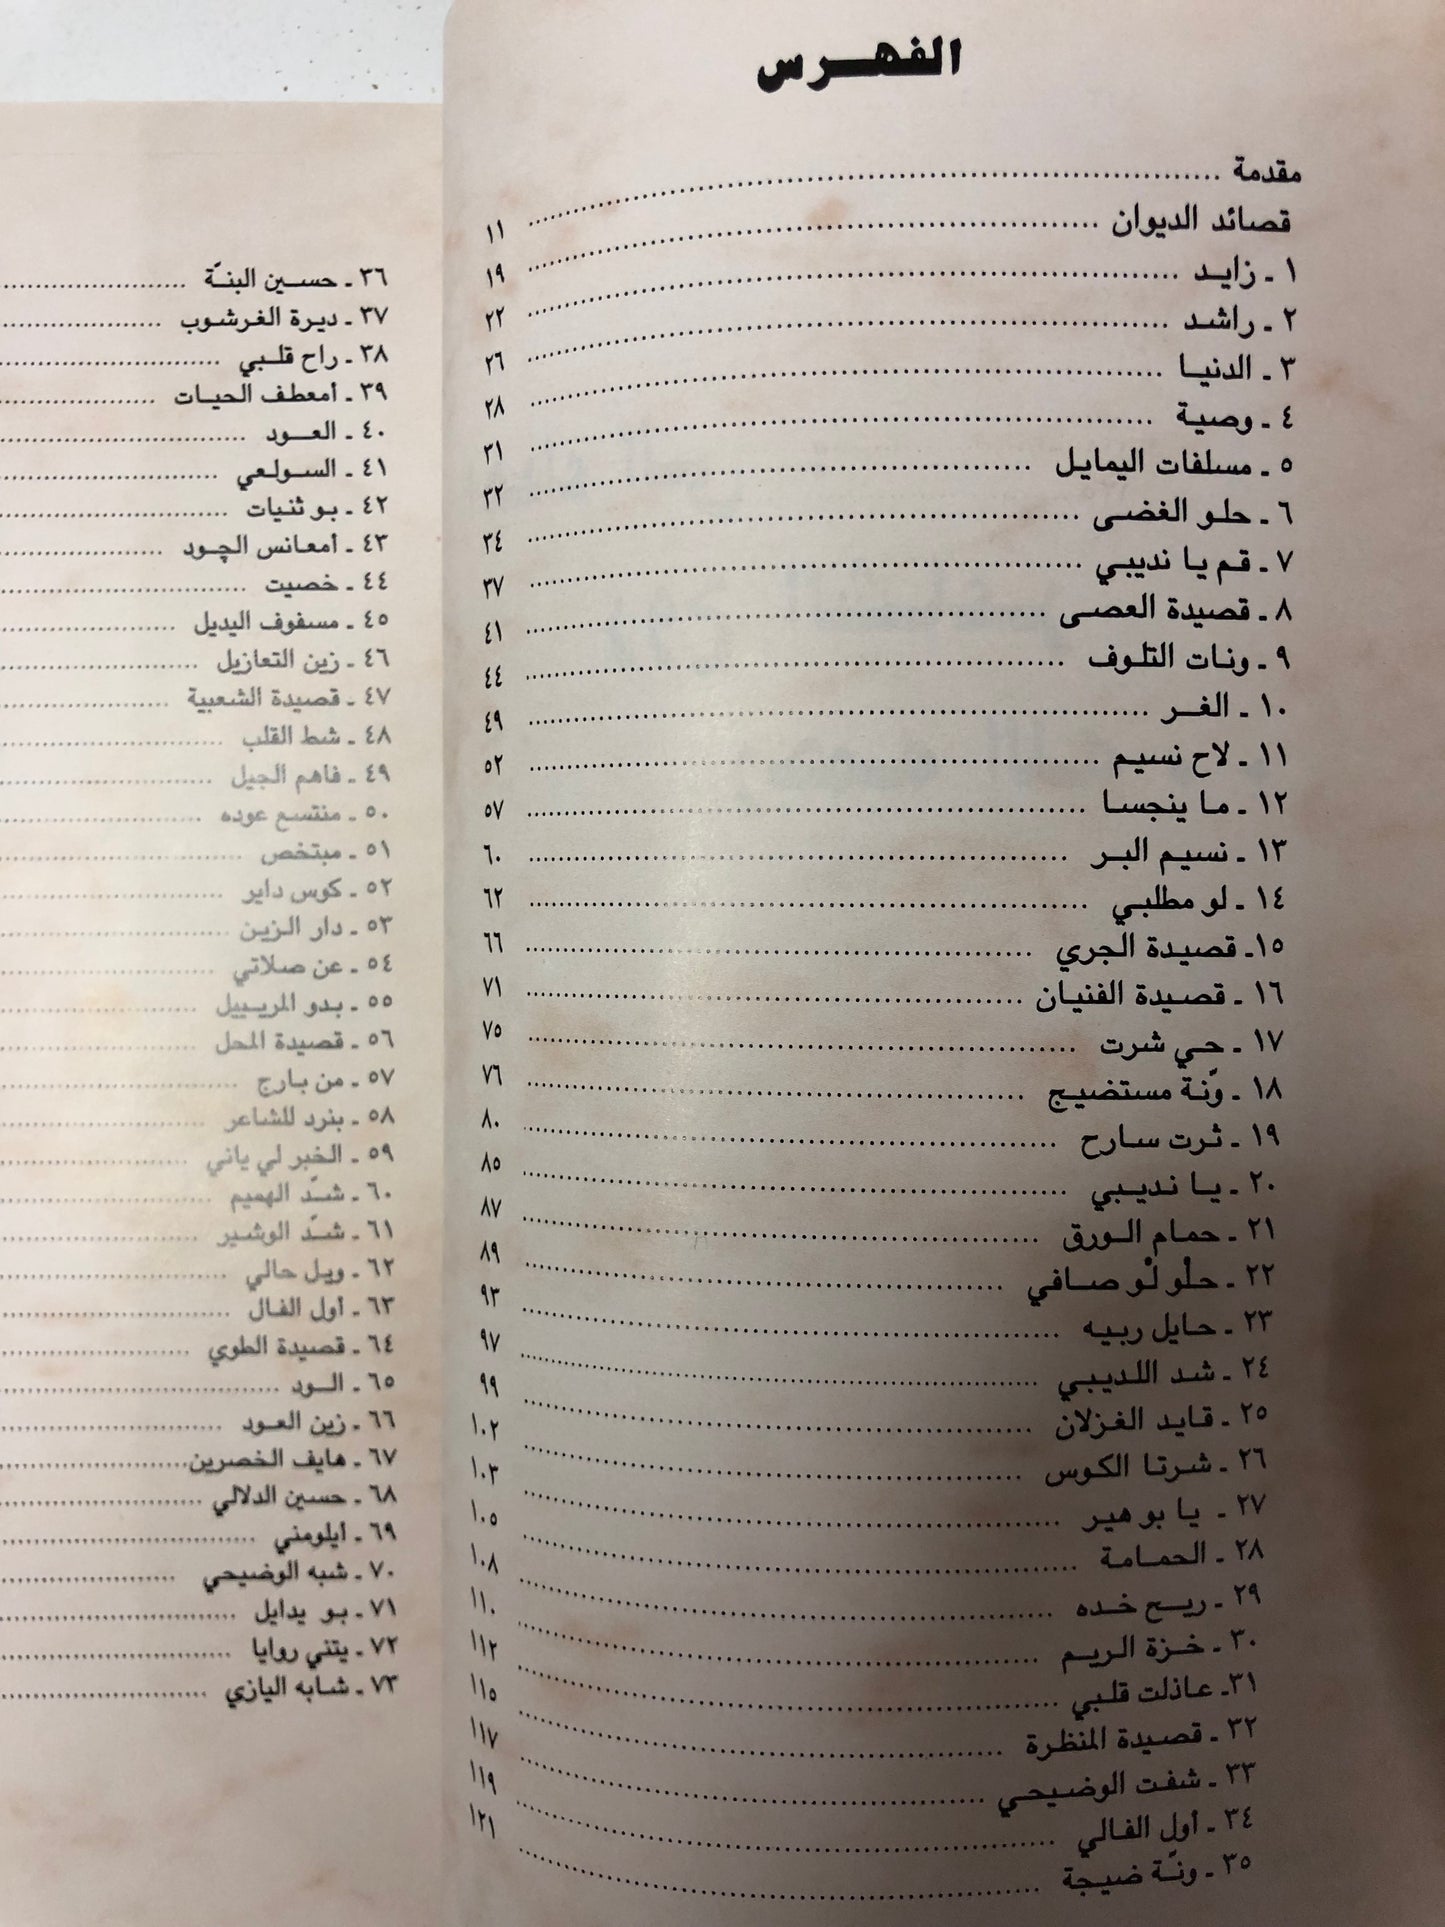 الفهرس
مقدمة ........ ١١
قصائد الديوان ........ ١٩
١ ـ زايد ........ ٢٢
٢ ـ راشد ........ ٢٦
٣ ـ الدنيا ........ ٢٨
٤ ـ وصية ........ ٣١
٥ ـ مسلفات اليمايل ........ ٣٢
٦ ـ حلو الغضى ........ ٣٤
٧ ـ قم يا نديبي ........ ٣٧
٨ ـ قصيدة العصى ........ ٤١
٩ ـ ونات التلوف ........ ٤٤
١٠ ـ الغر ........ ٤٩
١١ ـ لاح نسيم ........ ٥٢
١٢ ـ ما ينجسا ........ ٥٧
١٣ ـ نسيم البر ........ ٦٠
١٤ ـ لو مطلبي ........ ٦٢
١٥ـ قصيدة الجري ........ ٦٦
١٦ ـ قصيدة الفنيان ........ ٧١
١٧ ـ حي شرت ........ ٧٥
١٨ ـ ونّة مستضيج ........ ٧٦
١٩ ـ ثرت سارح ........ ٨٠
٢٠ ـ يا نديبي ........ ٨٥
٢١ ـ حمام الورق ........ ٨٧
٢٢ ـ حلْو لْو صافي ........ ٨٩
٢٣ ـ حايل ربيه ........ ٩٣
٢٤ ـ شد اللديبي ........ ٩٧
٢٥ ـ قايد الغزلان ........ ٩٩
٢٦ ـ شرتا الكوس ........ ١٠٢
٢٧ ـ يا بو هير ........ ١٠٣
٢٨ ـ الحمامة ........ ١٠٥
٢٩ ـ ريح خده ........ ١٠٨
٣٠ ـ خزة الريم ........ ١١٠
٣١ـ عاذلت قلبي ........ ١١٢
٣٢ ـ قصيدة المنظرة ........ ١١٥
٣٣ ـ شفت الوضيحي ........ ١١٧
٣٤ ـ أول الفالي ........ ١١٩
٣٥ ـ ونّة ضيجة ........ ١٢١
٣٦ ـ حسين البنّة ........
٣٧ ـ ديرة الغرشوب ........
٣٨ ـ راح قلبي ........
٣٩ ـ أمعطف الحيات ........
٤٠ ـ العود ........
٤١ ـ السولعي ........
٤٢ ـ بو ثنيات ........
٤٣ ـ أمعانس الچود ........
٤٤ ـ خصيت ........
٤٥ ـ مسفوف اليديل ........
٤٦ ـ زين التعازيل ........
٤٧ ـ قصيدة الشعبية ........
٤٨ ـ شط القلب ........
٤٩ ـ فاهم الجيل ........
٥٠ ـ منتسع عوده ........
٥١ ـ مبتخص ........
٥٢ ـ كوس داير ........
٥٣ ـ دار الزين ........
٥٤ ـ عن صلاتي ........
٥٥ ـ بدو المرييل ........
٥٦ ـ قصيدة المحل ........
٥٧ ـ من بارج ........
٥٨ ـ بنرد للشاعر ........
٥٩ ـ الخبر لي ياني ........
٦٠ ـ شدّ الهميم ........
٦١ ـ شدّ الوشير ........
٦٢ ـ ويل حالي ........
٦٣ ـ أول الفال ........
٦٤ ـ قصيدة الطوي ........
٦٥ ـ الود ........
٦٦ ـ زين العود ........
٦٧ ـ هايف الخصرين ........
٦٨ ـ حسين الدلالي ........
٦٩ ـ أيلومني ........
٧٠ ـ شبه الوضيحي ........
٧١ ـ بو يدايل ........
٧٢ ـ يتني روايا ........
٧٣ ـ شابه اليازي ........